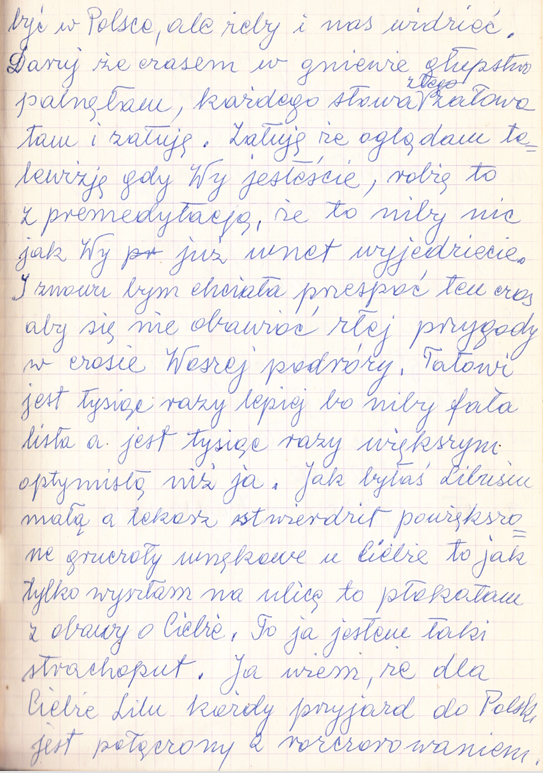 być w Polsce, ale żeby i nas widzieć.
Daruj że czasem w gniewie głupstwo
palnęłam, każdego słowa złego żałowa
łam i żałuję. Żałuję że oglądam te=
lewizję gdy Wy jesteście, robię to
z premedytacją, że to niby nic
jak Wy pr już wnet wyjedziecie.
I znowu bym chciała przespać ten czas
aby się nie obawiać złej przygody
w czasie Waszej podróży. Tatowi
jest tysiąc razy lepiej bo niby fata
lista a jest tysiąc razy większym
optymistą niż ja. Jak byłaś Libusiu
małą a lekarz stwierdził powiększo=
ne gruczoły wnękowe u Ciebie to jak
tylko wyszłam na ulicę to płakałam
z obawy o Ciebie. To ja jestem taki
strachoput. Ja wiem, że dla
Ciebie Lilu każdy przyjazd do Polski
jest połączony z rozczarowaniem.